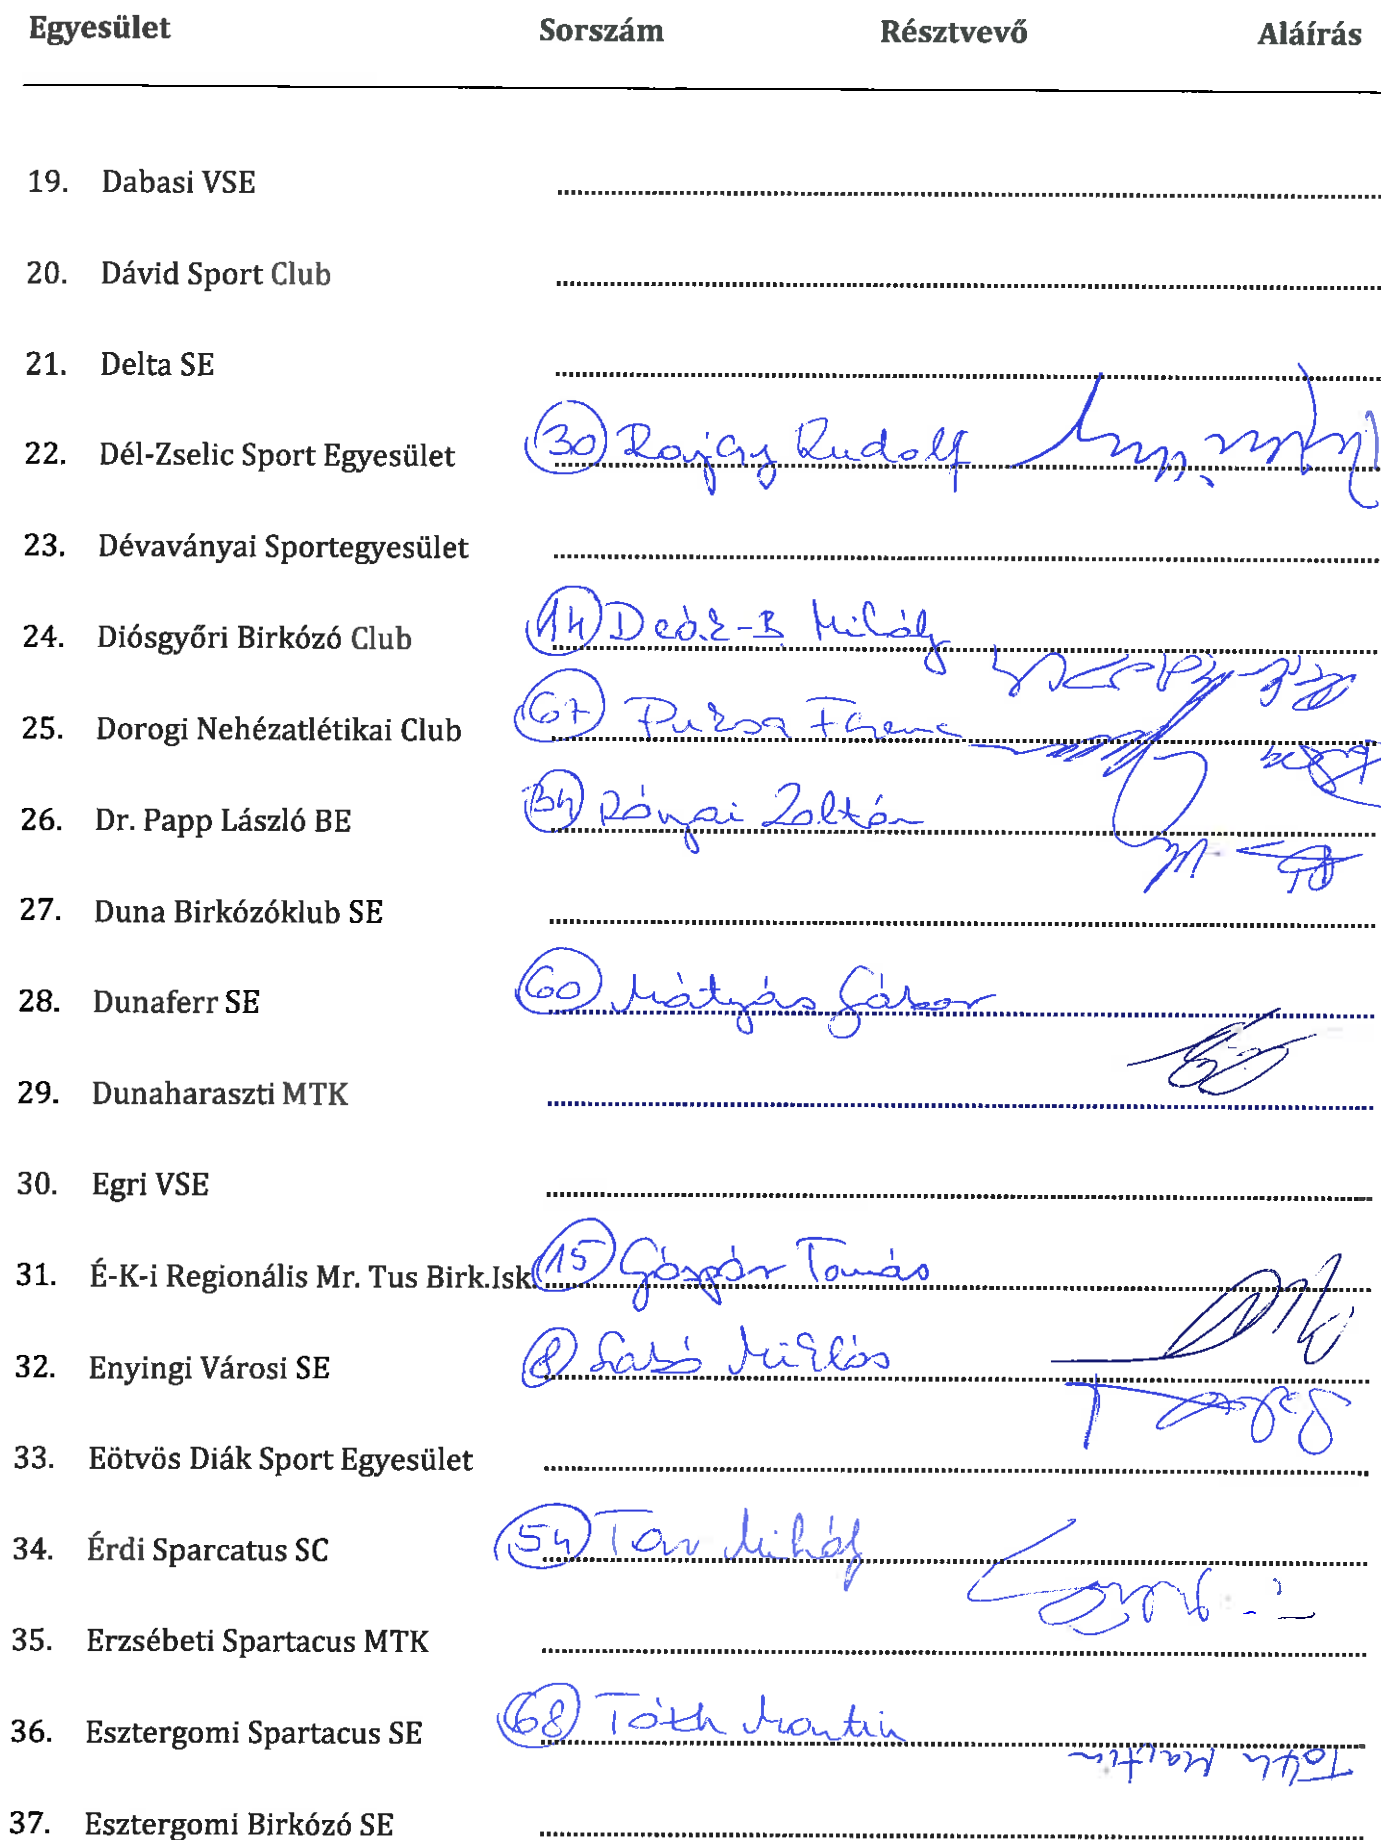 Egyesület Sorszám Résztvevő Aláírás
19. Dabasi VSE
20. Dávid Sport Club
21. Delta SE
22. Dél-Zselic Sport Egyesület 30 Rudolf
23. Dévaványai Sportegyesület
24. Diósgyőri Birkózó Club 14 Deák-B Mihály
25. Dorogi Nehézatlétikai Club 67 Ferenc
26. Dr. Papp László BE 34 Rónyai Zoltán
27. Duna Birkózóklub SE
28. Dunaferr SE 60 Mátyás Gábor
29. Dunaharaszti MTK
30. Egri VSE
31. É-K-i Regionális Mr. Tus Birk.Isk. 15 Gáspár Tamás
32. Enyingi Városi SE 8 Szabó Miklós
33. Eötvös Diák Sport Egyesület
34. Érdi Sparcatus SC 54 Tar Mihály
35. Erzsébeti Spartacus MTK
36. Esztergomi Spartacus SE 68 Tóth Martin
Tóth Martin
37. Esztergomi Birkózó SE